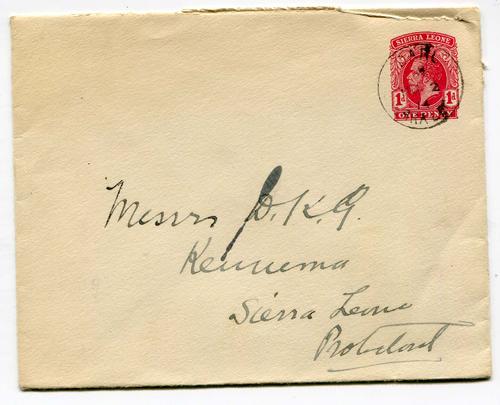 SIERRA LEONE
1d 1d
ONE PENNY
Messrs D.K.G.
Kennema
Sierra Leone